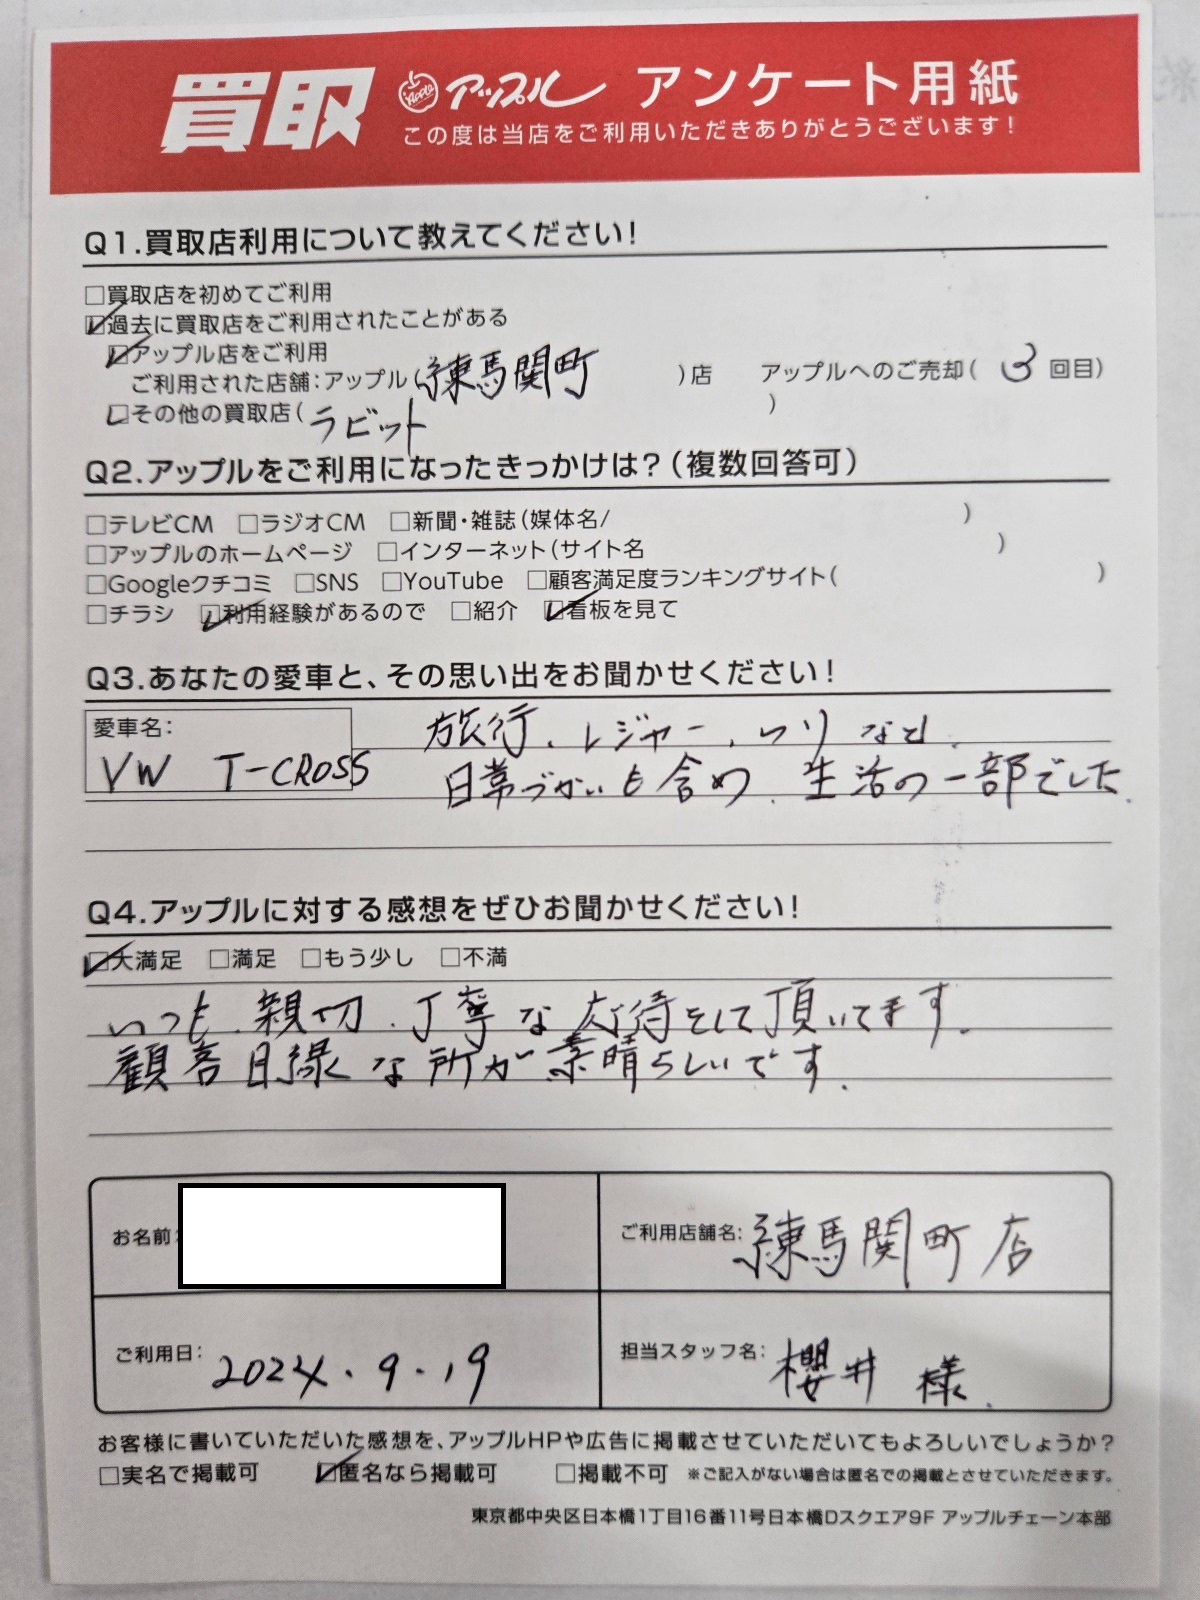 買取 Apple アップル アンケート用紙
この度は当店をご利用いただきありがとうございます!
Q1.買取店利用について教えてください!
□買取店を初めてご利用
☑過去に買取店をご利用されたことがある
☑アップル店をご利用
ご利用された店舗:アップル(練馬関町)店 アップルへのご売却(3回目)
☑その他の買取店(ラビット)
Q2.アップルをご利用になったきっかけは?(複数回答可)
□テレビCM □ラジオCM □新聞・雑誌(媒体名/ )
□アップルのホームページ □インターネット(サイト名 )
□Googleクチコミ □SNS □YouTube □顧客満足度ランキングサイト( )
□チラシ ☑利用経験があるので □紹介 ☑看板を見て
Q3.あなたの愛車と、その思い出をお聞かせください!
愛車名:
VW T-CROSS
旅行、レジャー、つりなど、
日常づかいも含め、生活の一部でした。
Q4.アップルに対する感想をぜひお聞かせください!
☑大満足 □満足 □もう少し □不満
いつも、親切、丁寧な応待をして頂いてます。
顧客目線な所が素晴らしいです。
お名前:
ご利用店舗名:練馬関町店
ご利用日:2024.9.19
担当スタッフ名:櫻井 様
お客様に書いていただいた感想を、アップルHPや広告に掲載させていただいてもよろしいでしょうか?
□実名で掲載可 ☑匿名なら掲載可 □掲載不可 ※ご記入がない場合は匿名での掲載とさせていただきます。
東京都中央区日本橋1丁目16番11号日本橋Dスクエア9F アップルチェーン本部